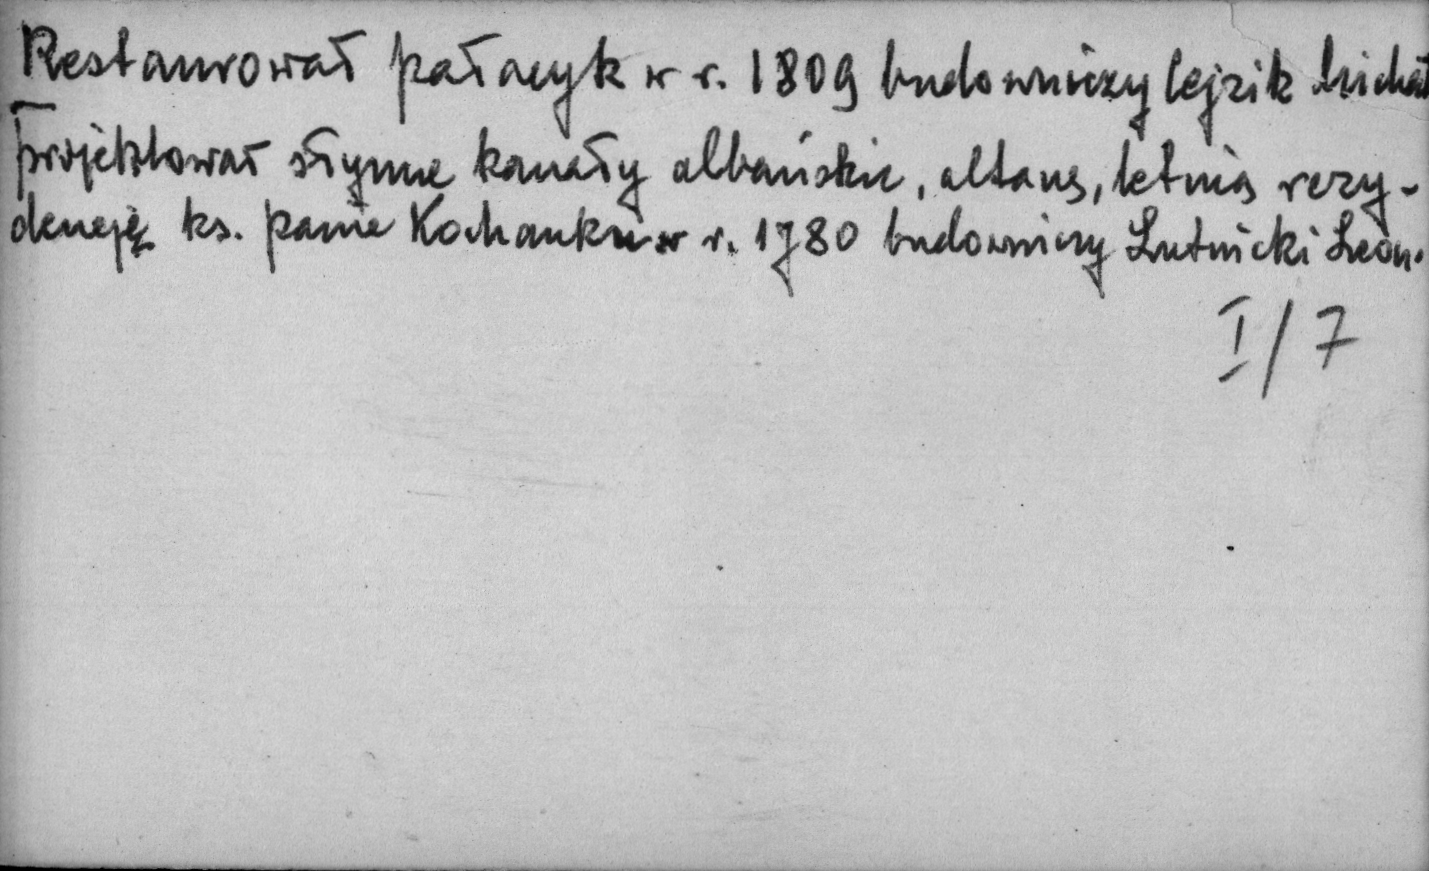 Restaurował pałacyk w r. 1809 budowniczy Cejzik Michał
Projektował słynne kanały albańskie, altanę, letnią rezy-
dencję ks. panie Kochanku w r. 1780 budowniczy Lutnicki Leon.
I/7